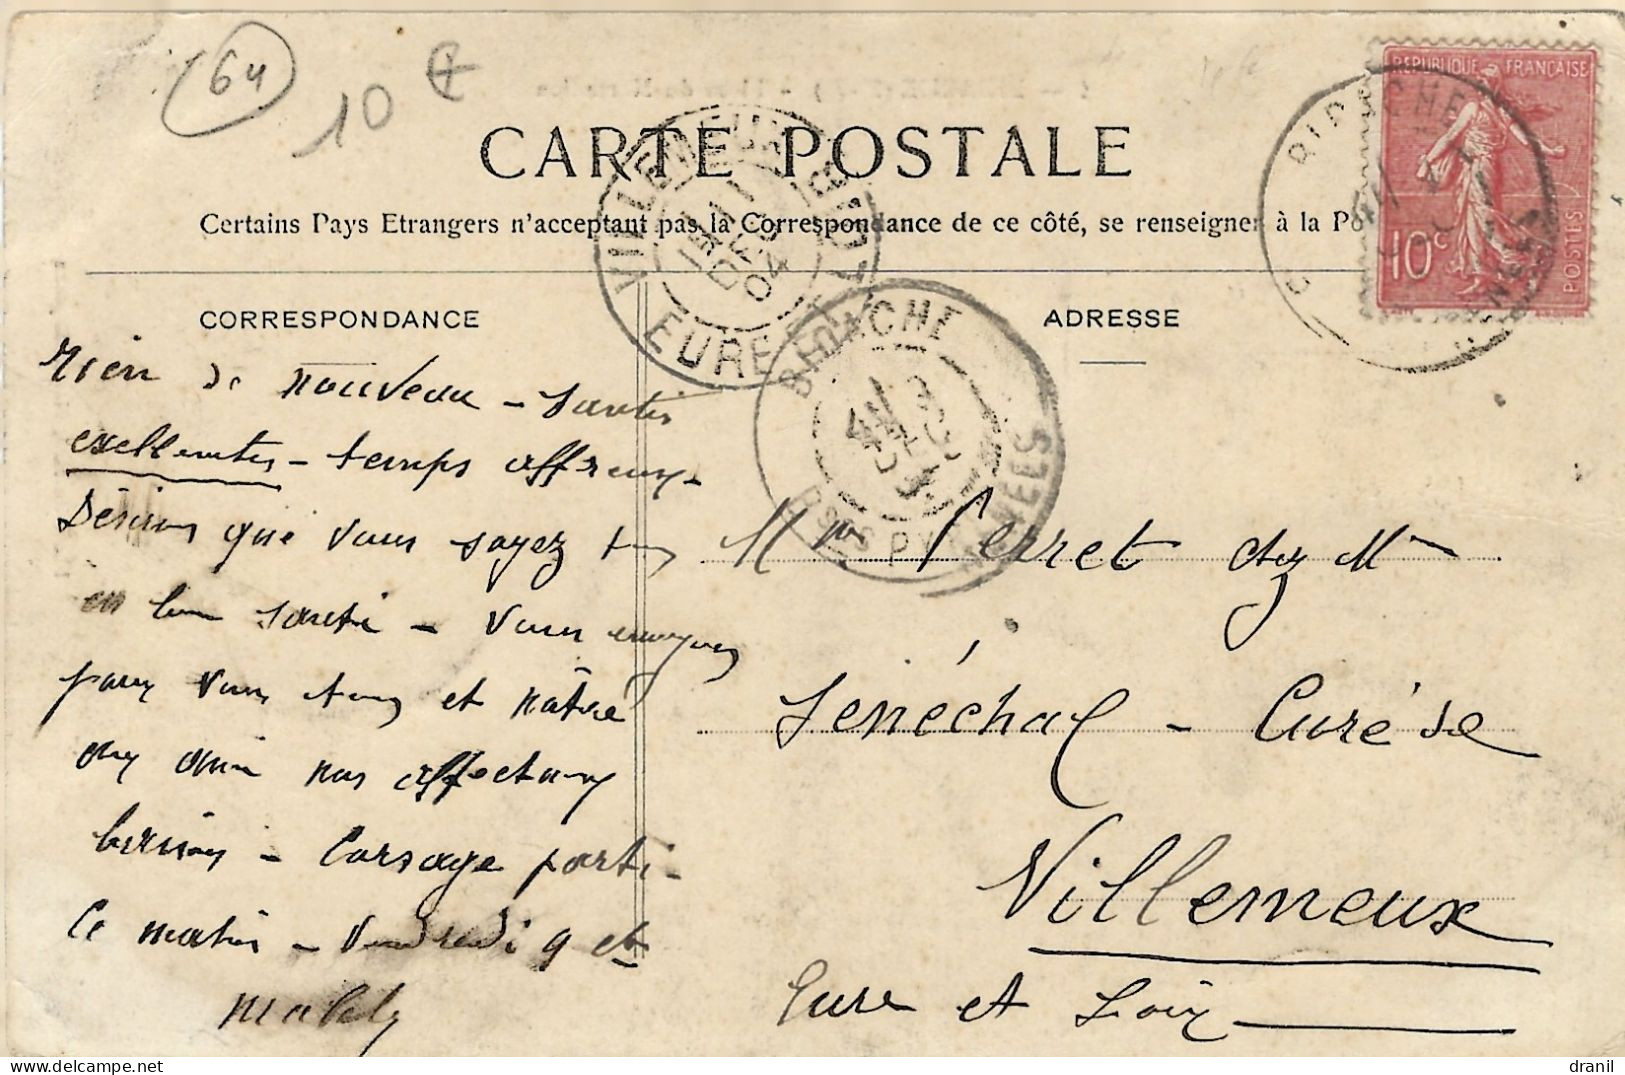 64
10 €
CARTE POSTALE
Certains Pays Etrangers n'acceptant pas la Correspondance de ce côté, se renseigner à la Po
REPUBLIQUE FRANÇAISE
10c
POSTES
VILLEMEUX
11
DEC
04
EURE ET LOIR
BIDACHE
DEC
BSES PYRENEES
BIDACHE
CORRESPONDANCE
ADRESSE
Rien de nouveau - Santés
excellentes - temps affreux -
Désirons que vous soyez tous
en bonne santé - Vous envoyons
pour vous tous et nôtre
nos affectueux
baisers - Corsage parti
ce matin - Vendredi 9 et
Mr Perret chez Mr
Sénéchal - Curé de
Villemeux
Eure et Loir
delcampe.net
dranil